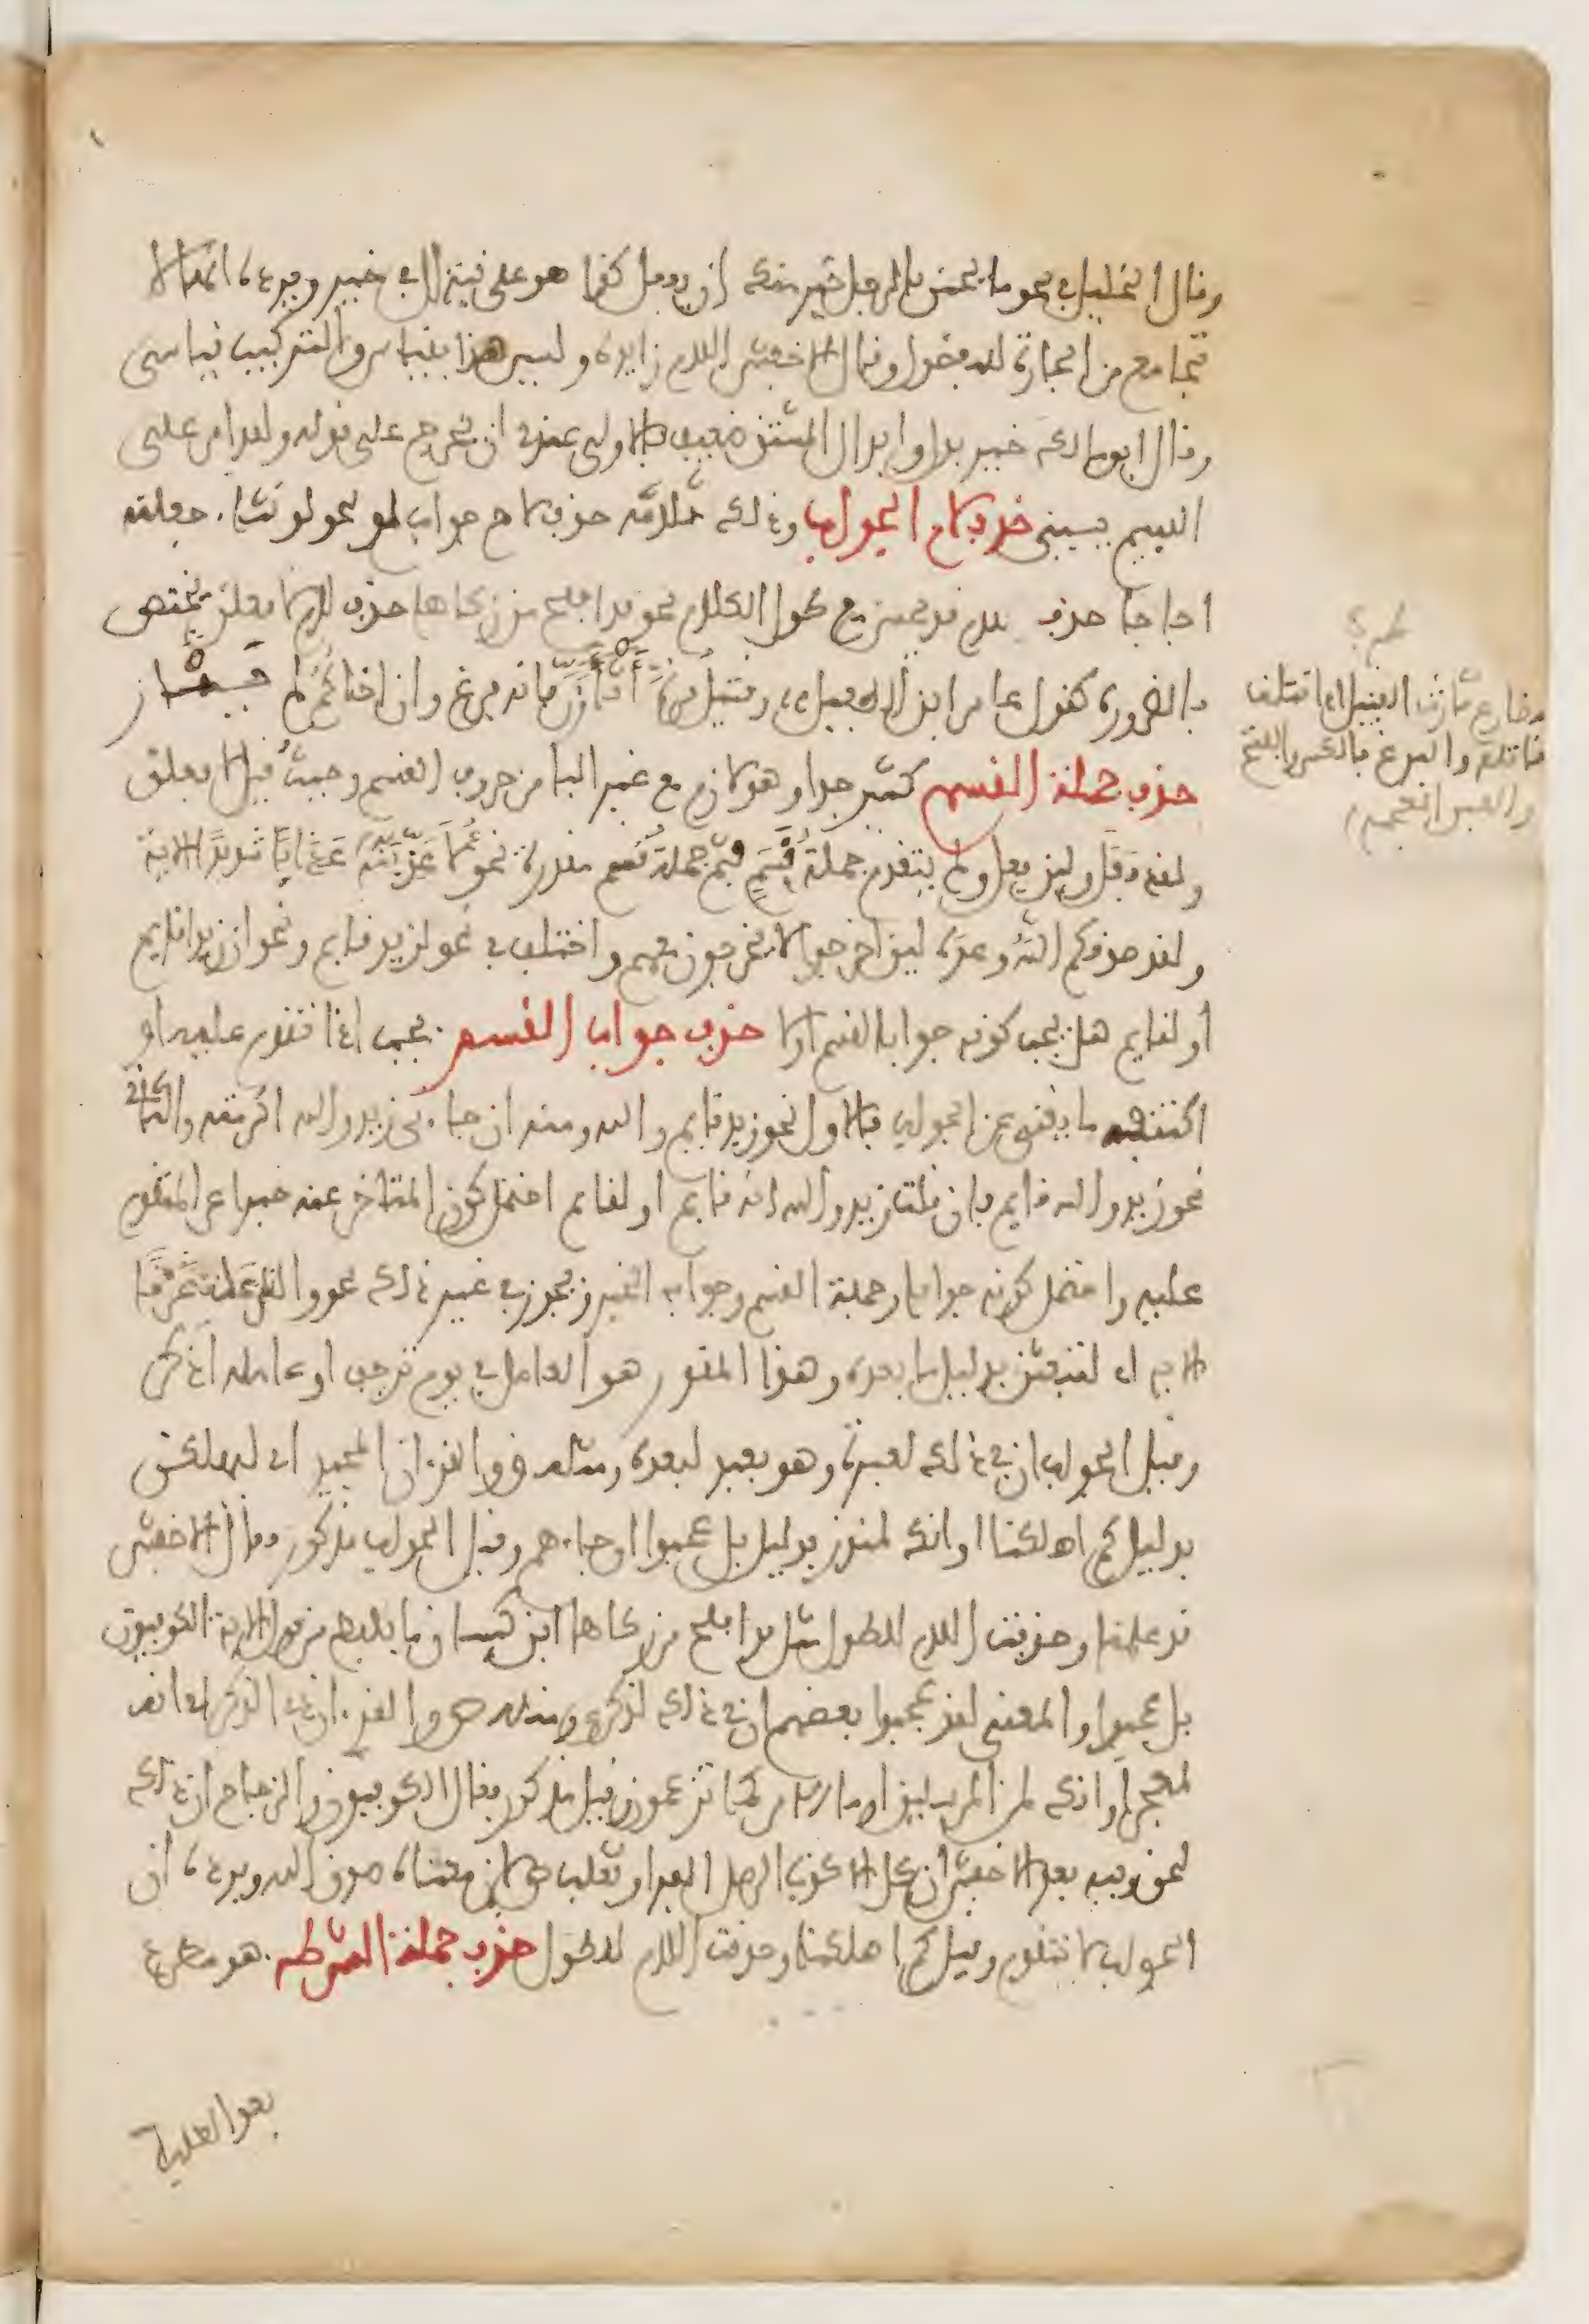 وقال الخليل في نحو ما يحسن بالرجل خير منك ان يفعل كذا هو على نية ال في خير ويرده انها لا
تجامع من الجارة للمفضول وقال الاخفش اللام زايدة وليس هذا بقياس والتركيب قياسي
وقال ابن مالك خير بدل وابدال المشتق ضعيف والاولى عندي ان يخرج على قوله ولقد امر على
اللييم يسبني حذف لام الجواب وذلك ثلاثة حذف لام جواب لو نحو لو نشاء جعلناه
اجاجا حذف لام قد يحسن مع طول الكلام نحو قد افلح من زكاها حذف لام لافعلن يختص
بالضرورة كقول عامر ابن الطفيل وقتيل مرة اثارن فانه فرغ وان اخاكم لم يثار
حذف جملة القسم كثير جدا وهو لازم مع غير الباء من حروف القسم وحيث قيل لافعلن
ولقد فعل ولين فعل ولم يتقدم جملة قسم فثم جملة قسم مقدرة نحو لاعذبنه عذابا شديدا الاية
ولقد صدقكم الله وعده لين اخرجوا لا يخرجون معهم واختلف في نحو لزيد قايم ونحو ان زيدا قايم
او لقايم هل يجب كونه جوابا لقسم او لا حذف جواب القسم يجب اذا تقدم عليه او
اكتنفه ما يغني عن الجواب فالاول نحو زيد قايم والله ومنه ان جاءني زيد والله اكرمته والثاني
نحو زيد والله قايم فان قلت زيد والله انه قايم او لقايم احتمل كون المتاخر عنه خبرا عن المتقدم
عليه واحتمل كونه جوابا وجملة القسم وجوابه الخبر ويجوز في غير ذلك نحو والنازعات غرقا
الاية اي لتبعثن بدليل ما بعده وهذا المقدر هو العامل في يوم ترجف او عامله اذكر
وقيل الجواب ان في ذلك لعبرة وهو بعيد لبعده ومثله ق والقرءان المجيد اي ليهلكن
بدليل كم اهلكنا او انك لمنذر بدليل بل عجبوا ان جاءهم وقيل الجواب مذكور فقال الاخفش
قد علمنا وحذفت اللام للطول مثل قد افلح من زكاها ابن كيسان ما يلفظ من قول الاية الكوفيون
بل عجبوا والمعنى لقد عجبوا بعضهم ان في ذلك لذكرى ومثله ص والقرءان ذي الذكر اي انه
لمعجز او انك لمن المرسلين او ما الامر كما تزعمون وقيل مذكور فقال الكوفيون والزجاج ان ذلك
لحق وفيه بعد الاخفش ان كل الا كذب الرسل الفراء وثعلب ص لان معناه صدق الله ويرده ان
الجواب لا يتقدم وقيل كم اهلكنا وحذفت اللام للطول حذف جملة الشرط هو مطرد
بعد الطلب
طرة
مضارع ثارت القتيل اي قتلت
قاتله والفرغ بالكسر والفتح
والغين المعجمة